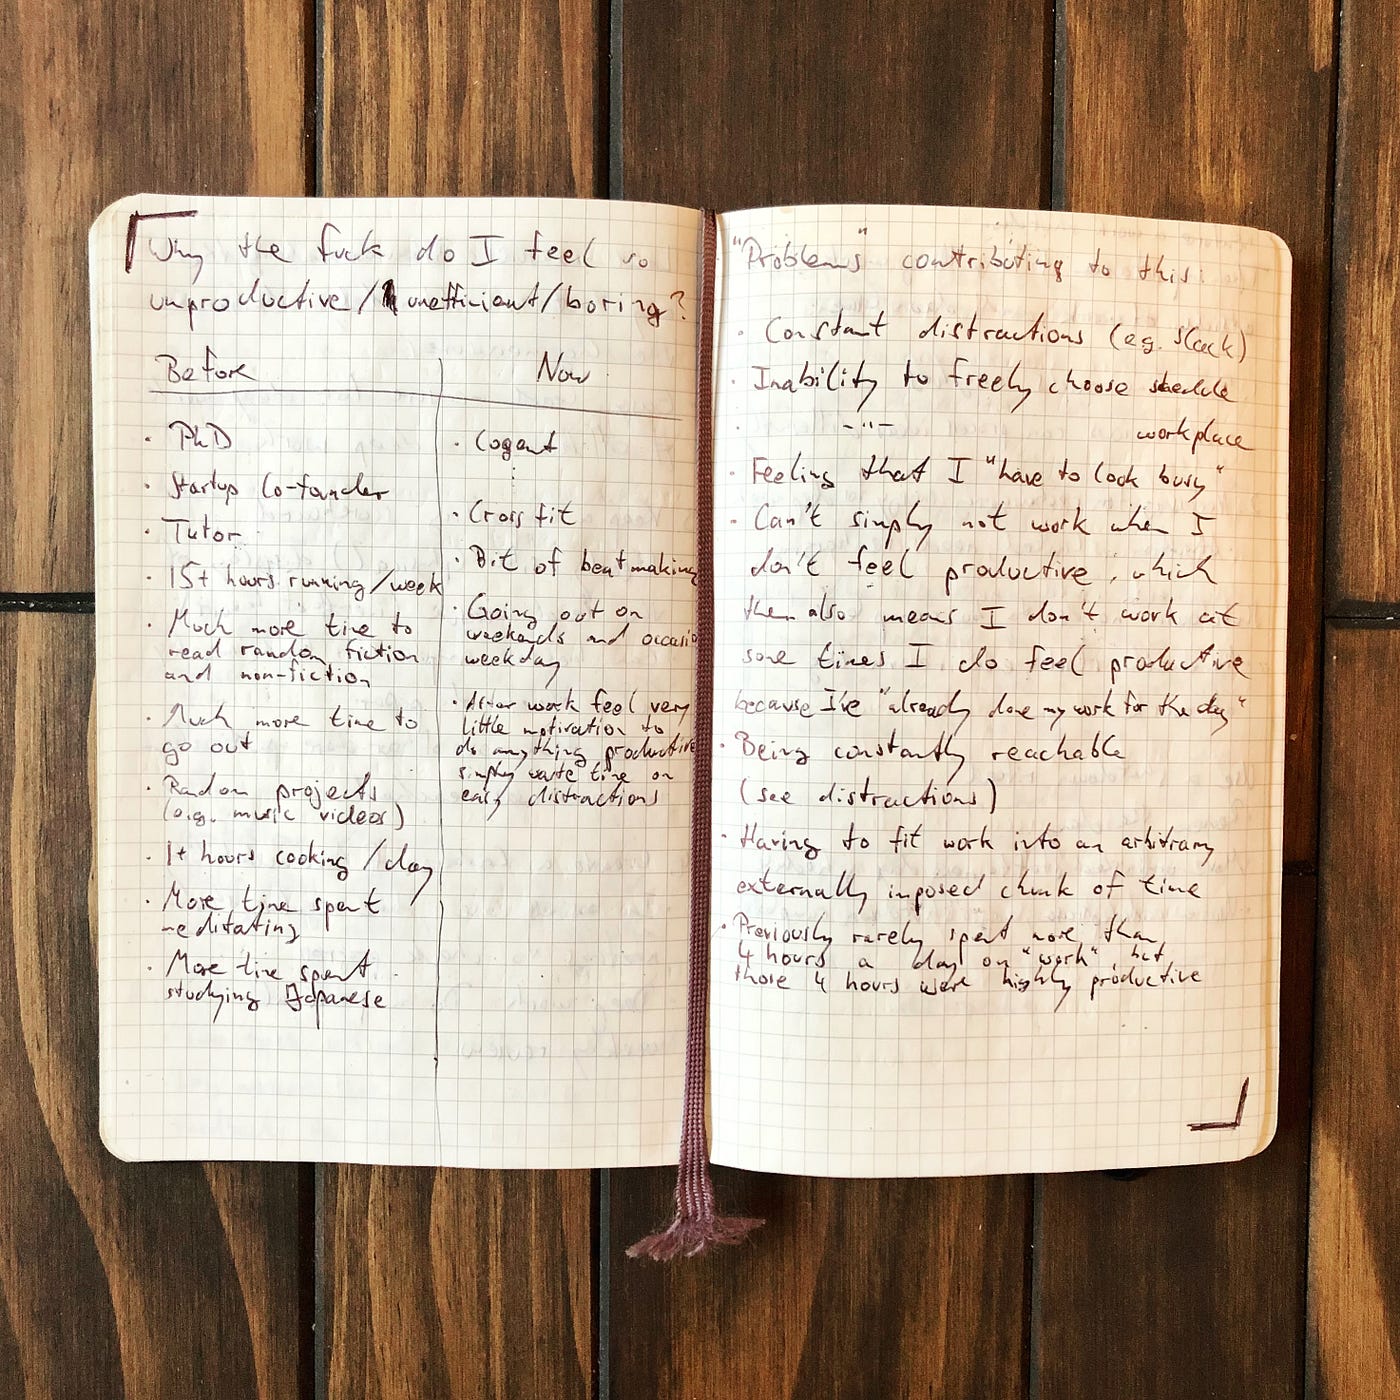 Why the fuck do I feel so
unproductive / unefficient/boring?
Before
· PhD
· Startup Co-founder
· Tutor
· 15+ hours running/week
· Much more time to
read random fiction
and non-fiction
· Much more time to
go out
· Random projects
(e.g. music videos)
· 1+ hours cooking /day
· More time spent
meditating
· More time spent
studying Japanese
Now
· Cogent
· Crossfit
· Bit of beatmaking
· Going out on
weekends and occasio
weekday
· After work feel very
little motivation to
do anything productive
simply waste time on
easy distractions
"Problems" contributing to this:
· Constant distractions (e.g. Slack)
· Inability to freely choose schedule
· -"- workplace
· Feeling that I "have to look busy"
· Can't simply not work when I
don't feel productive, which
then also means I don't work at
some times I do feel productive
because I've "already done my work for the day"
· Being constantly reachable
(see distractions)
· Having to fit work into an arbitrary
externally imposed chunk of time
· Previously rarely spent more than
4 hours a day on "work", but
those 4 hours were highly productive